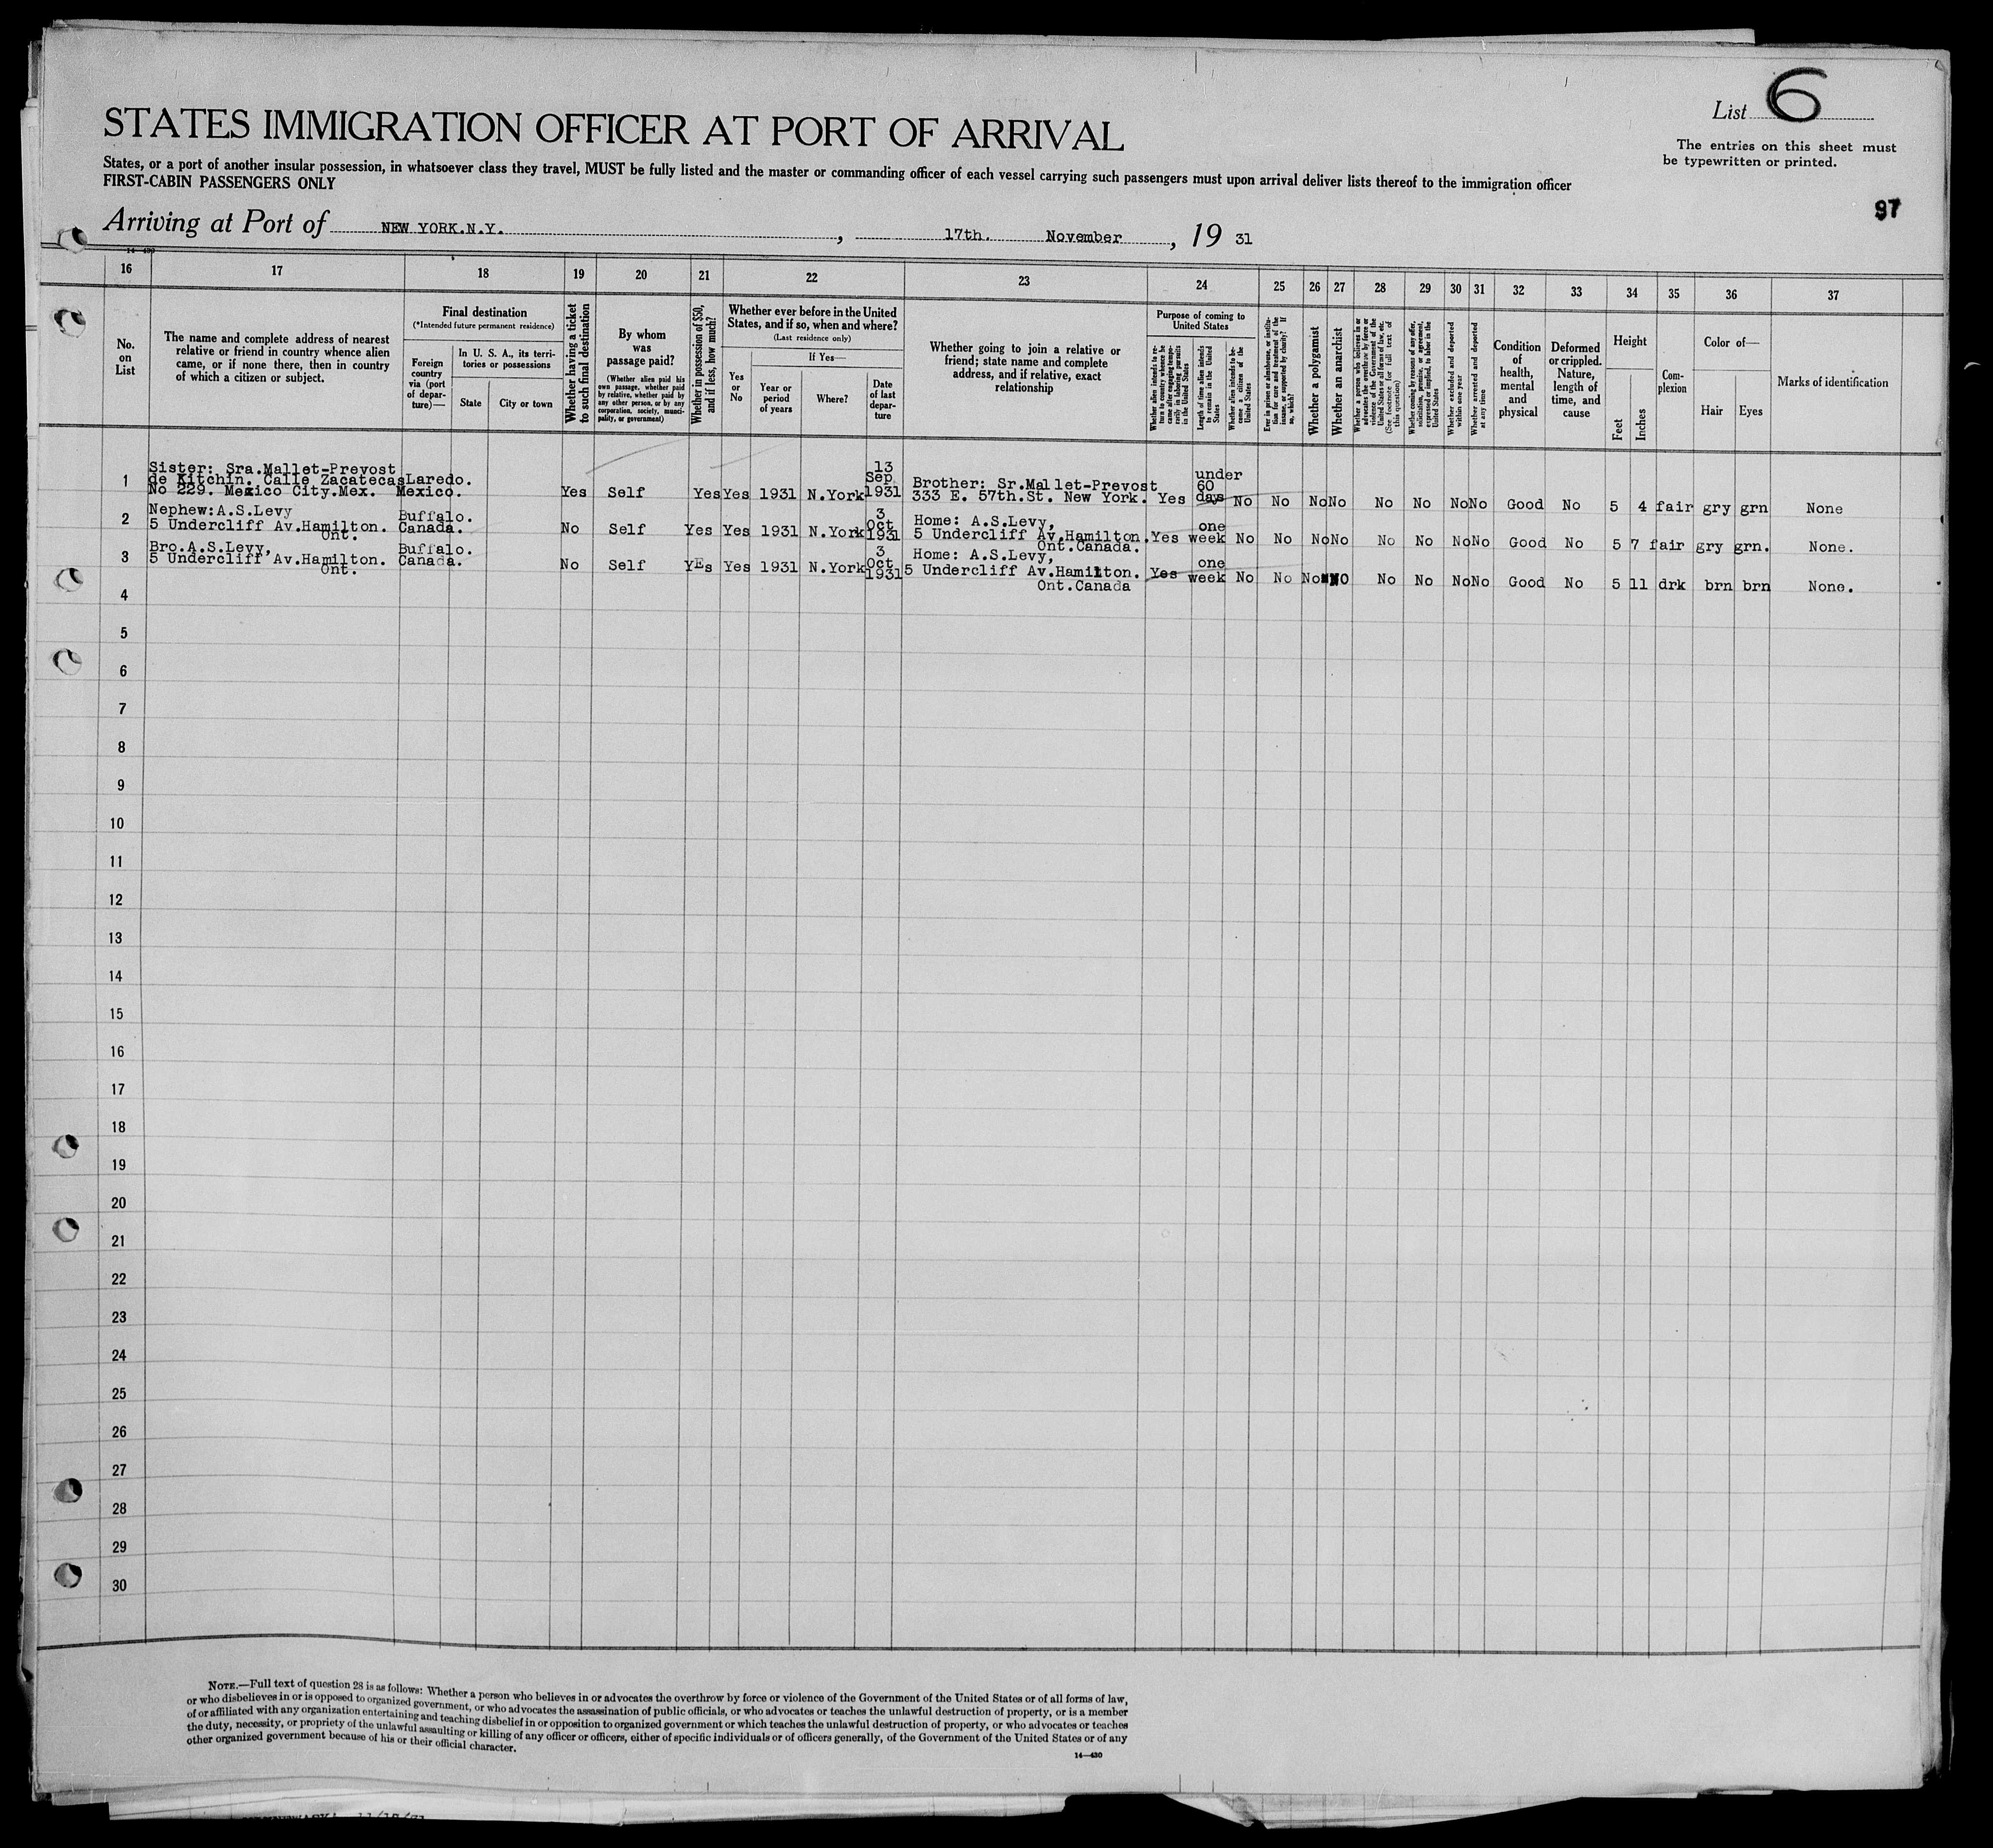 List 6
STATES IMMIGRATION OFFICER AT PORT OF ARRIVAL
The entries on this sheet must
be typewritten or printed.
States, or a port of another insular possession, in whatsoever class they travel, MUST be fully listed and the master or commanding officer of each vessel carrying such passengers must upon arrival deliver lists thereof to the immigration officer
FIRST-CABIN PASSENGERS ONLY
97
Arriving at Port of NEW YORK.N.Y., 17th. November, 19 31
16 17 18 19 20 21 22 23 24 25 26 27 28 29 30 31 32 33 34 35 36 37
No.
on
List
The name and complete address of nearest
relative or friend in country whence alien
came, or if none there, then in country
of which a citizen or subject.
Final destination
(*Intended future permanent residence)
Foreign
country
via (port
of depar-
ture)—
In U. S. A., its terri-
tories or possessions
State
City or town
Whether having a ticket
to such final destination
By whom
was
passage paid?
(Whether alien paid his
own passage, whether paid
by relative, whether paid by
any other person, or by any
corporation, society, munici-
pality, or government)
Whether in possession of $50,
and if less, how much?
Whether ever before in the United
States, and if so, when and where?
(Last residence only)
Yes
or
No
If Yes—
Year or
period
of years
Where?
Date
of last
depar-
ture
Whether going to join a relative or
friend; state name and complete
address, and if relative, exact
relationship
Purpose of coming to
United States
Whether alien intends to re-
turn to country whence he
came after engaging tempo-
rarily in laboring pursuits
in the United States
Length of time alien intends
to remain in the United
States
Whether alien intends to be-
come a citizen of the
United States
Ever in prison or almshouse, or institu-
tion for care and treatment of the
insane, or supported by charity? If
so, which?
Whether a polygamist
Whether an anarchist
Whether a person who believes in or
advocates the overthrow by force or
violence of the Government of the
United States or all forms of law, etc.
(See footnote for full text of
this question)
Whether coming by reasons of any offer,
solicitation, promise, or agreement,
expressed or implied, to labor in the
United States
Whether excluded and deported
within one year
Whether arrested and deported
at any time
Condition
of
health,
mental
and
physical
Deformed
or crippled.
Nature,
length of
time, and
cause
Height
Feet
Inches
Com-
plexion
Color of—
Hair
Eyes
Marks of identification
1 Sister: Sra.Mallet-Prevost
de Kitchin. Calle Zacatecas Laredo.
No 229. Mexico City.Mex. Mexico. Yes Self Yes Yes 1931 N.York 13 Sep 1931 Brother: Sr.Mallet-Prevost
333 E. 57th.St. New York. Yes under 60 days No No No No No No No No Good No 5 4 fair gry grn None
2 Nephew:A.S.Levy Buffalo.
5 Undercliff Av.Hamilton. Canada.
Ont. No Self Yes Yes 1931 N.York 3 Oct 1931 Home: A.S.Levy,
5 Undercliff Av.Hamilton.
Ont.Canada. Yes one week No No No No No No No No Good No 5 7 fair gry grn. None.
3 Bro.A.S.Levy, Buffalo.
5 Undercliff Av.Hamilton. Canada.
Ont. No Self YEs Yes 1931 N.York 3 Oct 1931 Home: A.S.Levy,
5 Undercliff Av.Hamilton.
Ont.Canada Yes one week No No No NO No No No No Good No 5 11 drk brn brn None.
4
5
6
7
8
9
10
11
12
13
14
15
16
17
18
19
20
21
22
23
24
25
26
27
28
29
30
NOTE.—Full text of question 28 is as follows: Whether a person who believes in or advocates the overthrow by force or violence of the Government of the United States or of all forms of law,
or who disbelieves in or is opposed to organized government, or who advocates the assassination of public officials, or who advocates or teaches the unlawful destruction of property, or is a member
of or affiliated with any organization entertaining and teaching disbelief in or opposition to organized government or which teaches the unlawful destruction of property, or who advocates or teaches
the duty, necessity, or propriety of the unlawful assaulting or killing of any officer or officers, either of specific individuals or of officers generally, of the Government of the United States or of any
other organized government because of his or their official character.
14—430